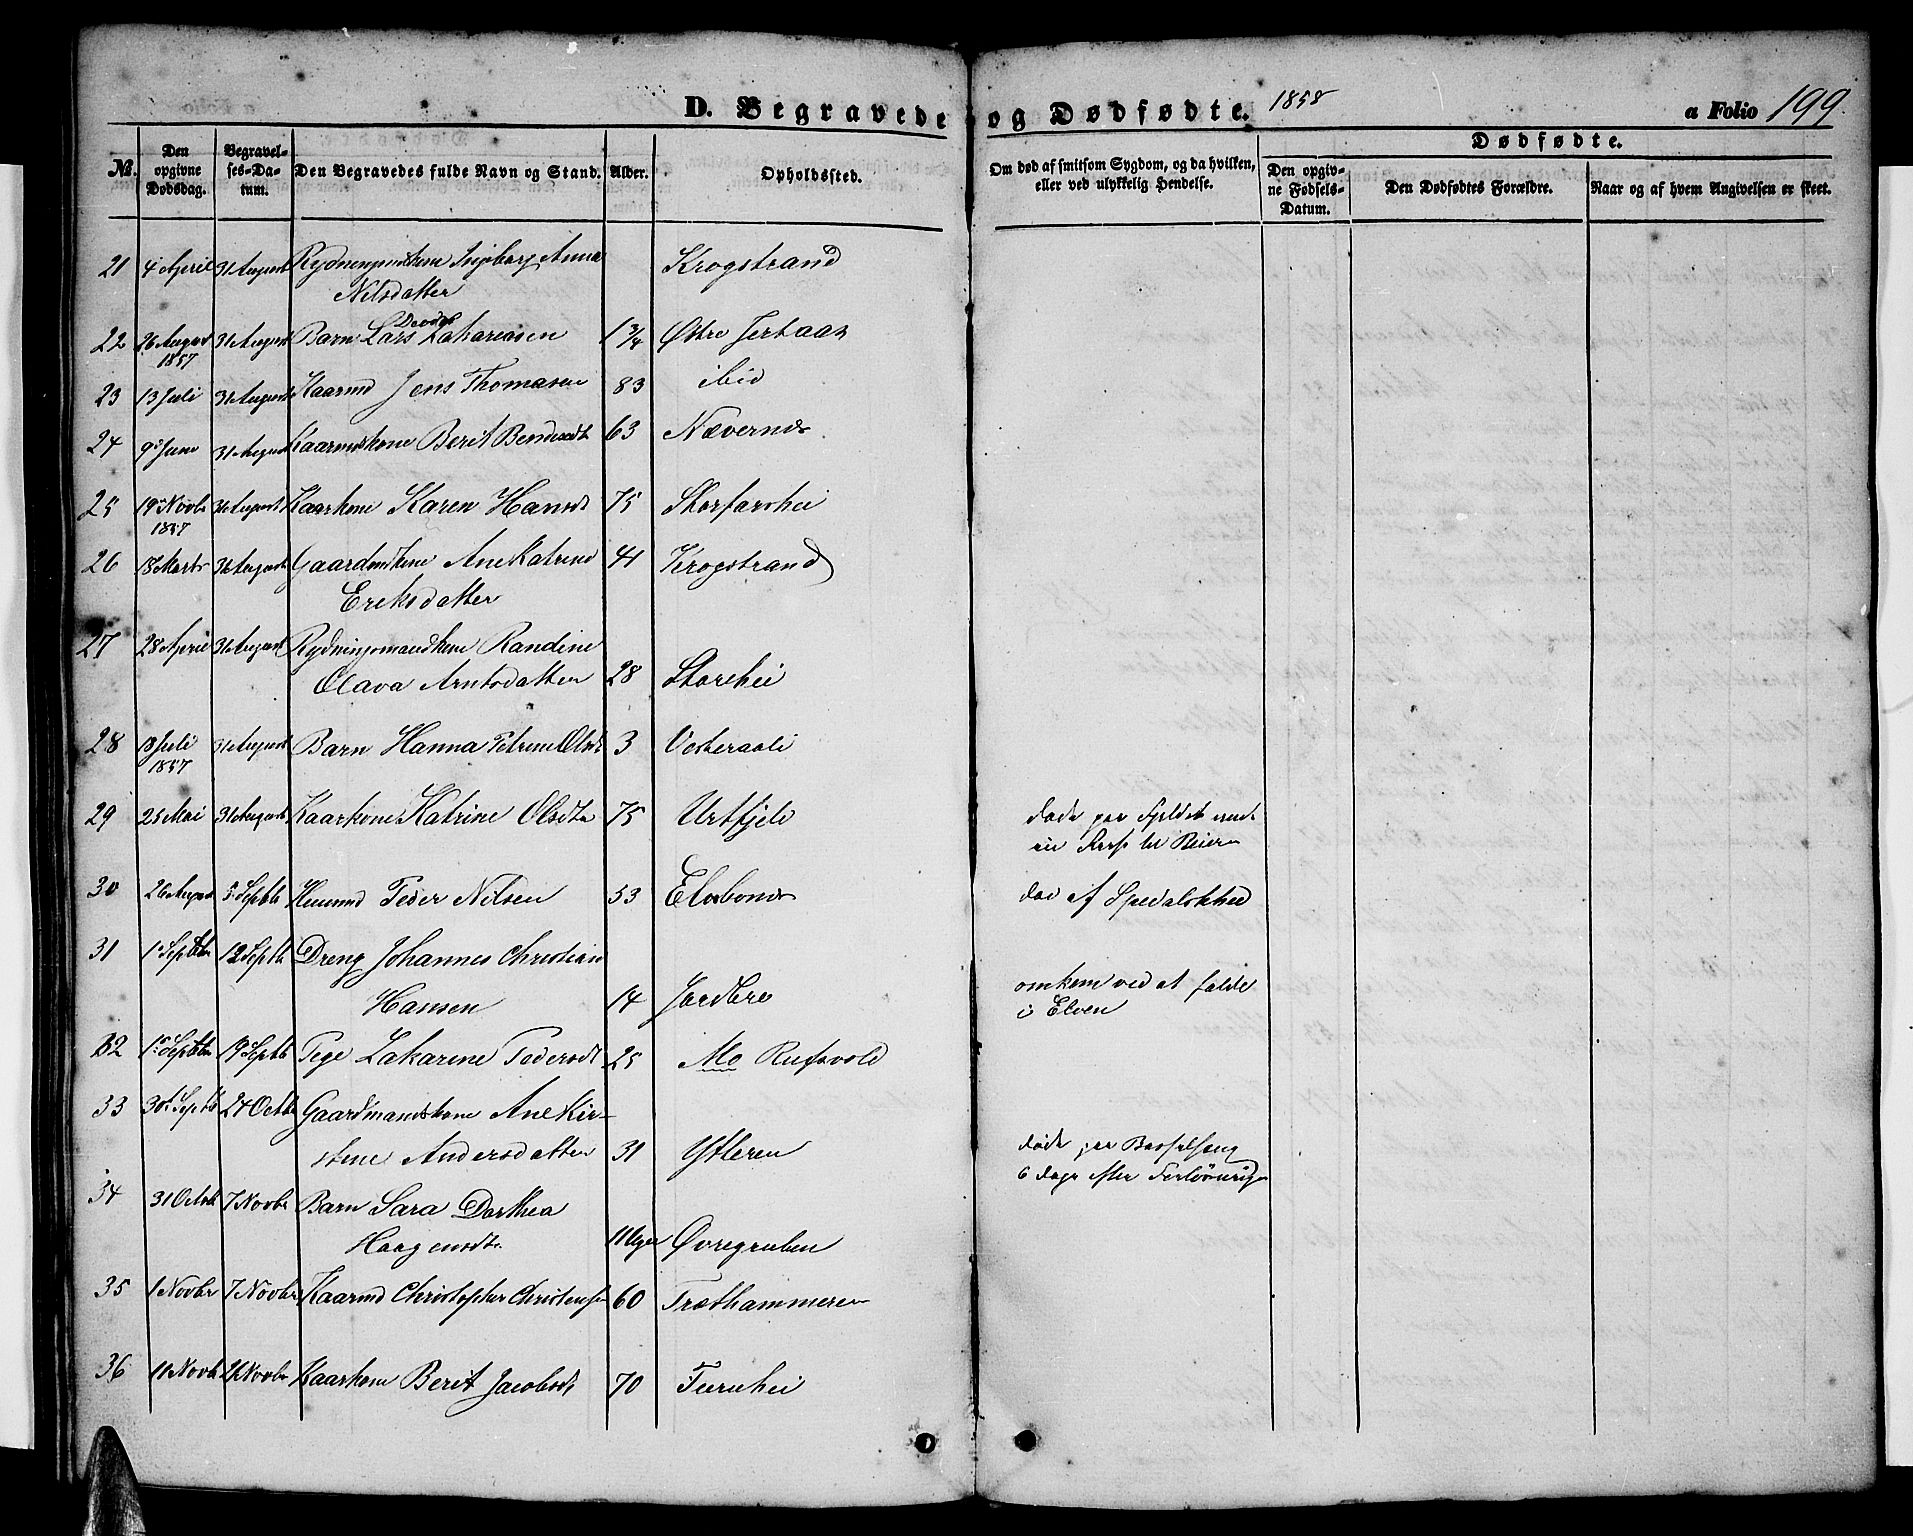 D. Begravede og Dødfødte. 1858 a Folio 199.
No. Den opgivne Dødsdag. Begravelses-Datum. Den Begravedes fulde Navn og Stand. Alder. Opholdssted. Om død af smitsom Sygdom, og da hvilken, eller ved ulykkelig Hendelse. Dødfødte. Den opgivne Fødsels-Datum. Den Dødfødtes Forældre. Naar og af hvem Angivelsen er skeet.
21 4 April 31 August Rydningsmdskone Ingeborg Anna Krogstrand
Nilsdatter
22 26 August 31 August Barn Lars Zakariasen 1 3/4 Østre
1857
23 13 Juli 31 August Kaarmd Jens Thomasen 83 ibid
24 9 Juni 31 August Kaarmdskone Berit Bendixdt 63 Nævernæs
25 19 Novbr 31 August Kaarkone Karen Hansdt 75 Storforshei
1857
26 18 Marts 31 August Gaardmdskone Ane Katrine 41 Krogstrand
Eriksdatter
27 28 April 31 August Rydningsmandskone Randine
Olava Arntsdatter 28 Storehei
28 13 Juli 31 August Barn Hanna Petrine Olsdt 3 Vesteraali
1857
29 25 Mai 31 August Kaarkone Katrine Olsdtr 75 Urtfjeld døde paa Fjeldet
Reise til Beiern
30 26 August 5 Septb Huusmd Peder Nilsen 53 død af Spedalskhed
31 1 Septbr 12 Septb Dreng Johannes Christian
Hansen 14 Jordbro omkom ved at falde
i Elven
32 1 Septbr 19 Septb Pige Zakarine Pedersdt 25 Mo Rufsvold
33 30 Septb 24 Octb Gaardmandskone Ane Kir-
stine Andersdatter 31 Ytteren døde paa Barselseng
6 dage efter Forløsningen
34 31 Octob 7 Novbr Barn Sara Dorthea
Haagensdtr 11 Uger Øvregruben
35 1 Novbr 7 Novbr Kaarmd Christopher Christensen 60 Træthammeren
36 11 Novb 21 Novbr Kaarkone Berit Jacobsdt 70 Furuhei